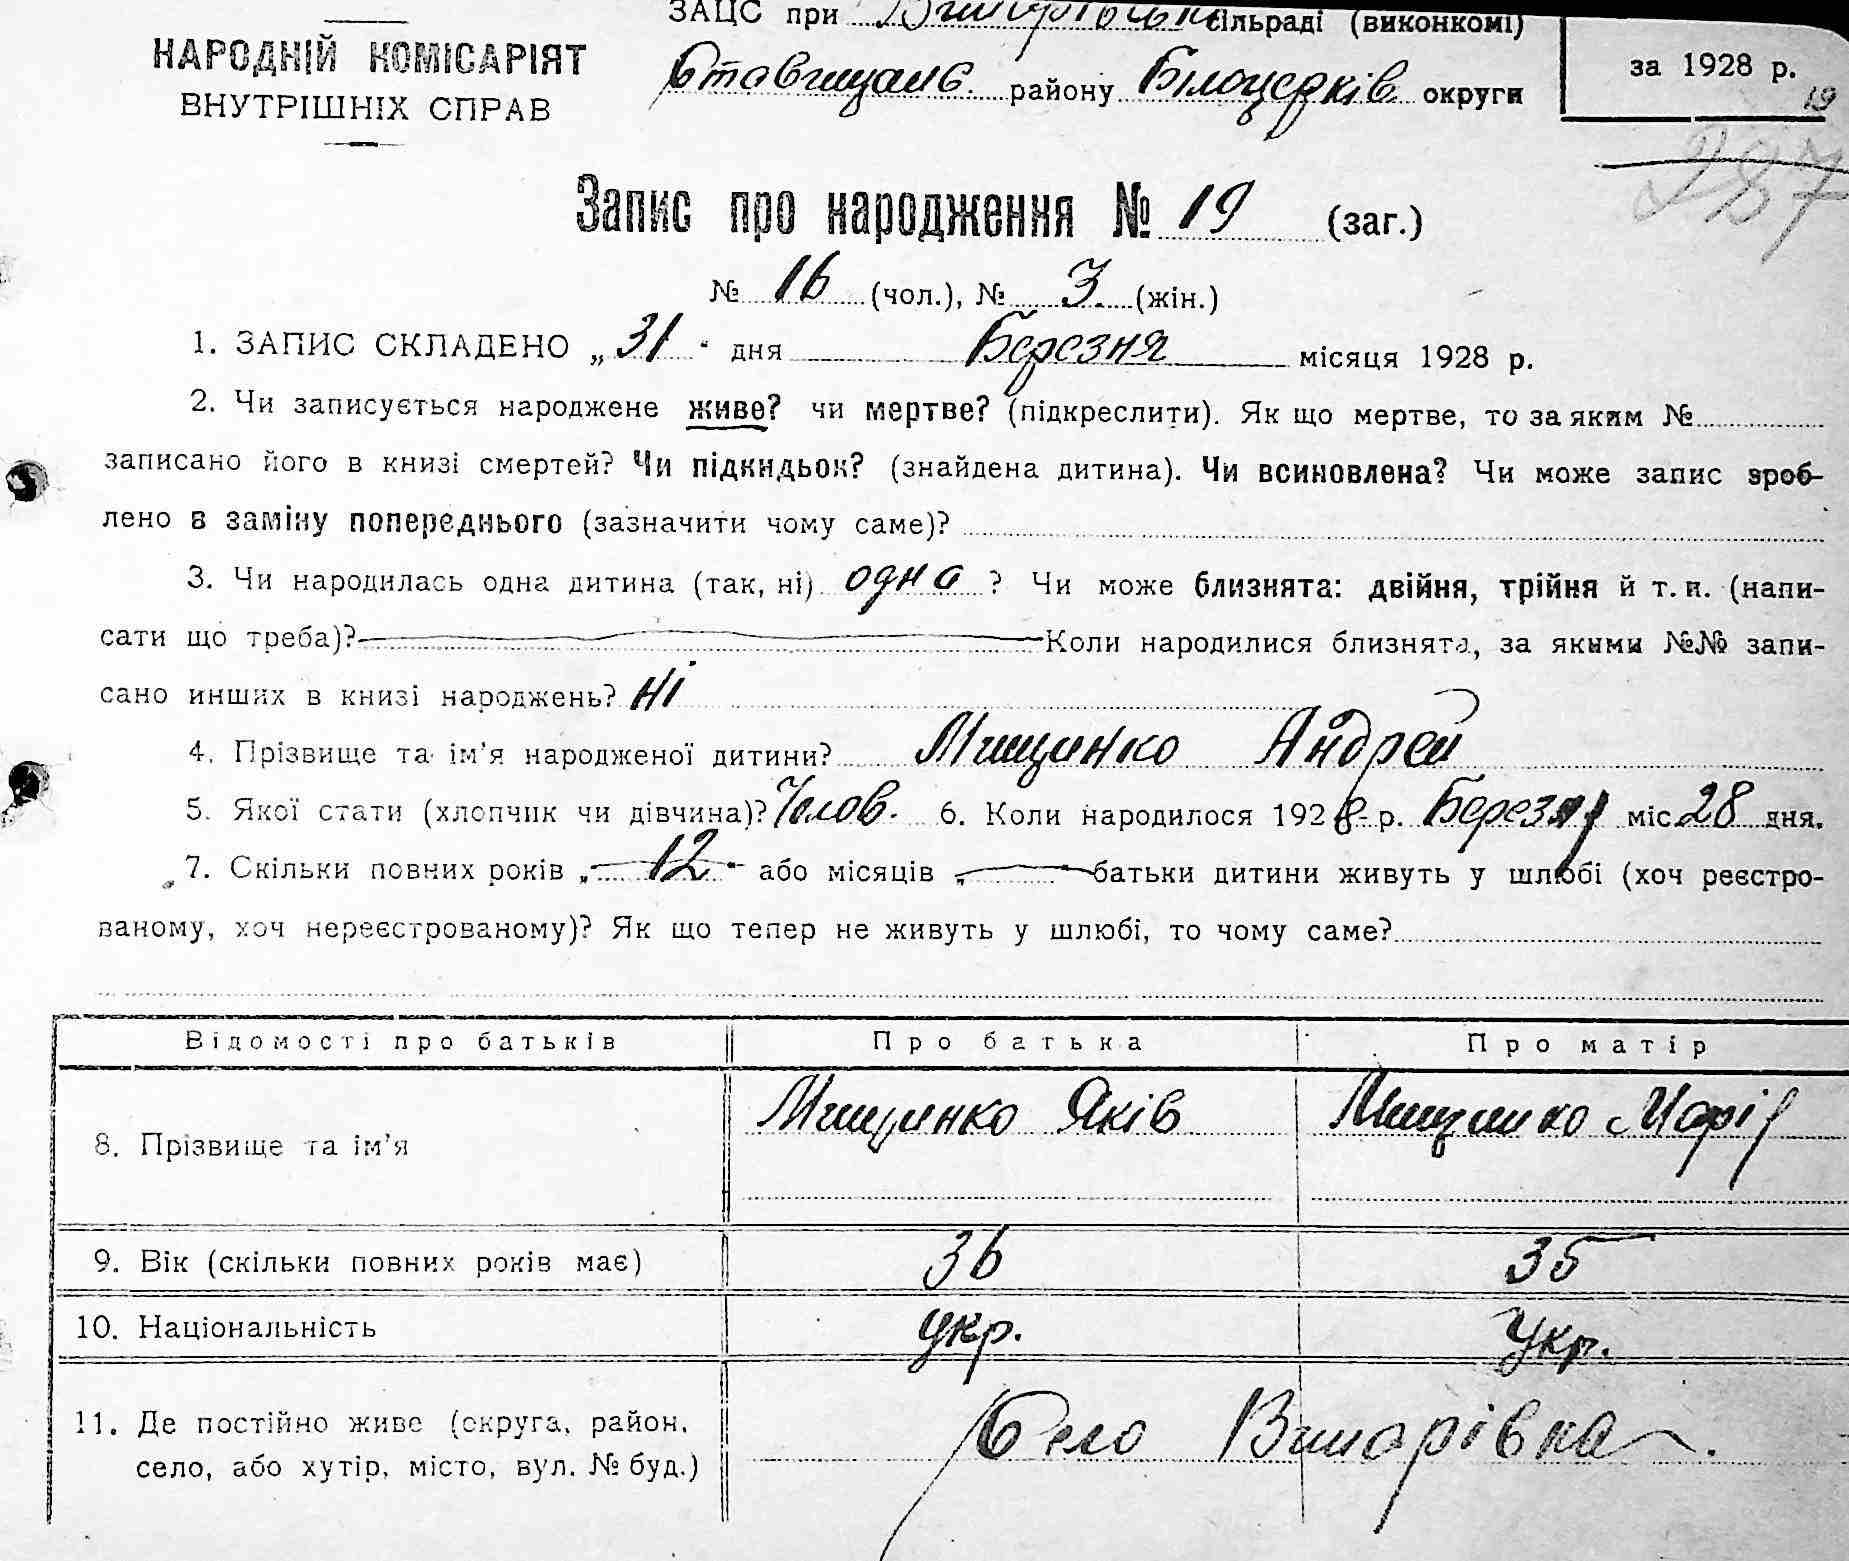 ЗАЦС при сільраді (виконкомі)
НАРОДНІЙ КОМІСАРІЯТ
ВНУТРІШНІХ СПРАВ
Ставищанс. району Білоцерків. округи
за 1928 р.
19
287
Запис про народження № 19 (заг.)
№ 16 (чол.), № 3 (жін.)
1. ЗАПИС СКЛАДЕНО „ 31 " дня Березня місяця 1928 р.
2. Чи записується народжене живе? чи мертве? (підкреслити). Як що мертве, то за яким №
записано його в книзі смертей? Чи підкидьок? (знайдена дитина). Чи всиновлена? Чи може запис зроб-
лено в заміну попереднього (зазначити чому саме)?
3. Чи народилась одна дитина (так, ні) одна ? Чи може близнята: двійня, трійня й т. и. (напи-
сати що треба)? Коли народилися близнята, за якими №№ запи-
сано инших в книзі народжень? ні
4. Прізвище та ім'я народженої дитини? Мищинко Андрей
5. Якої стати (хлопчик чи дівчина)? Чолов. 6. Коли народилося 1928 р. Березня міс. 28 дня.
7. Скільки повних років „ 12 " або місяців „ " батьки дитини живуть у шлюбі (хоч реєстро-
ваному, хоч нереєстрованому)? Як що тепер не живуть у шлюбі, то чому саме?
Відомості про батьків Про батька Про матір
8. Прізвище та ім'я Мищинко Яків Мищинко Марія
9. Вік (скільки повних років має) 36 35
10. Національність укр. Укр.
11. Де постійно живе (округа, район,
село, або хутір, місто, вул. № буд.) Село Винарівка.